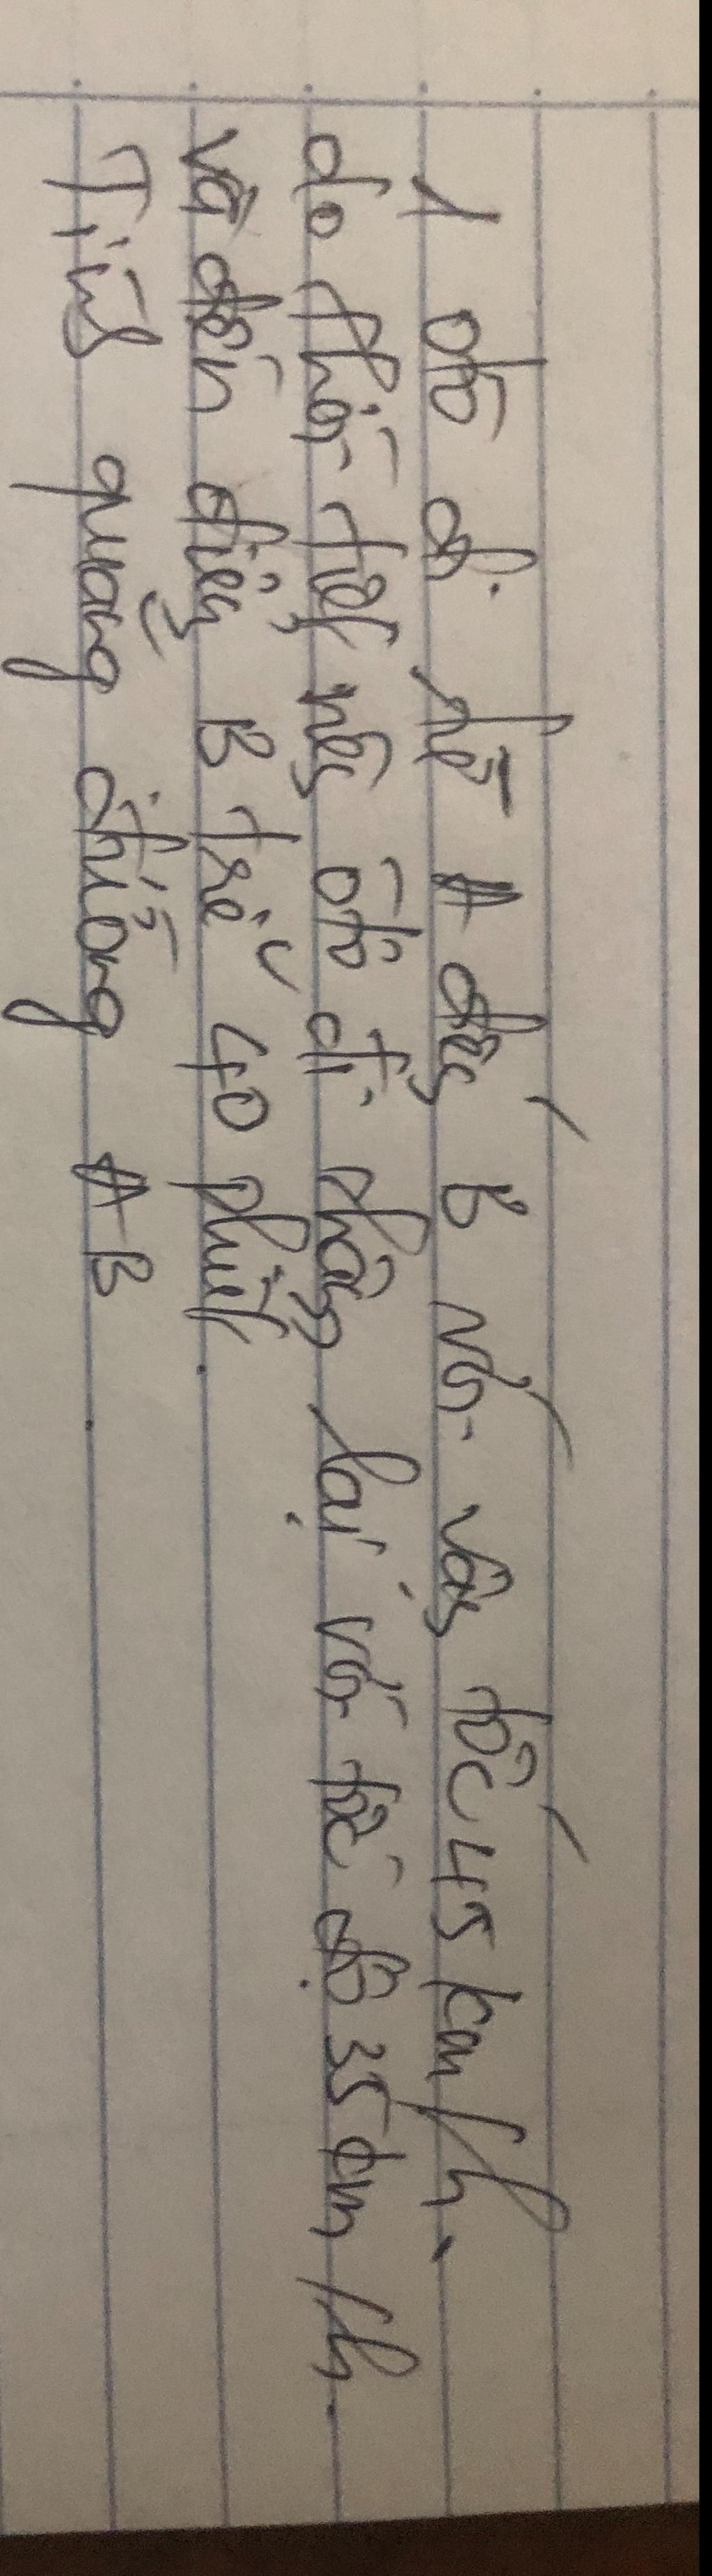 1 ôtô đi từ A đến B với vận tốc 45 km/h.
do thời tiết nên ôtô đi chậm lại với tốc độ 35 km/h.
và đến điểm B trễ 40 phút.
Tính quãng đường AB.